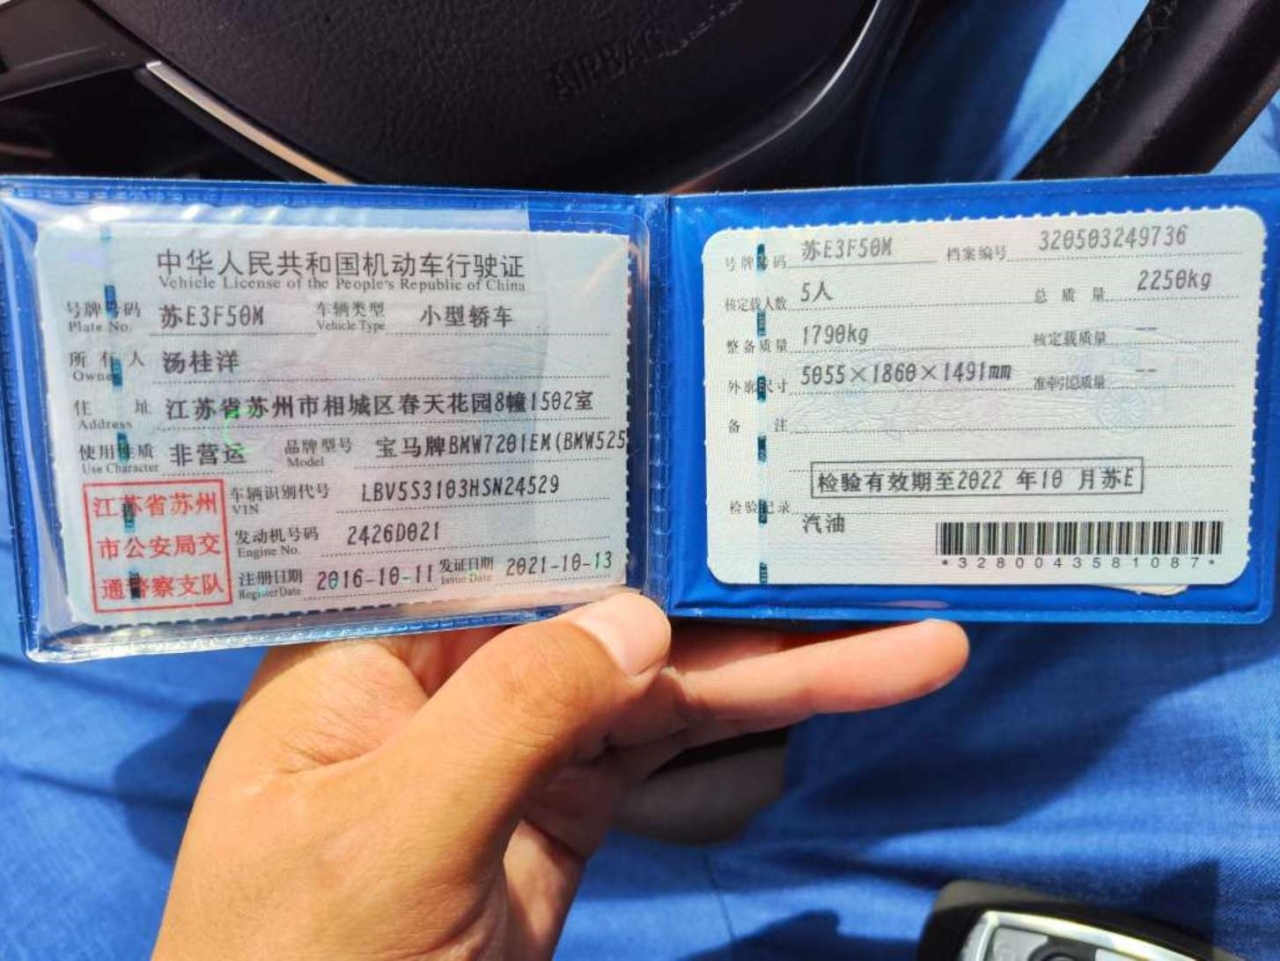 AIRBAG
中华人民共和国机动车行驶证
Vehicle License of the People's Republic of China
号牌号码 苏E3F50M 车辆类型 小型轿车
Plate No. Vehicle Type
所有人 汤桂洋
Owner
住址 江苏省苏州市相城区春天花园8幢1502室
Address
使用性质 非营运 品牌型号 宝马牌BMW7201EM(BMW525
Use Character Model
江苏省苏州
市公安局交
通警察支队
车辆识别代号 LBV5S3103HSN24529
VIN
发动机号码 2426D021
Engine No.
注册日期 2016-10-11 发证日期 2021-10-13
Register Date Issue Date
号牌号码 苏E3F50M 档案编号 320503249736
核定载人数 5人 总质量 2250kg
整备质量 1790kg 核定载质量 --
外廓尺寸 5055×1860×1491mm 准牵引总质量 --
备注
检验有效期至2022 年10 月苏E
检验记录
汽油
*3280043581087*